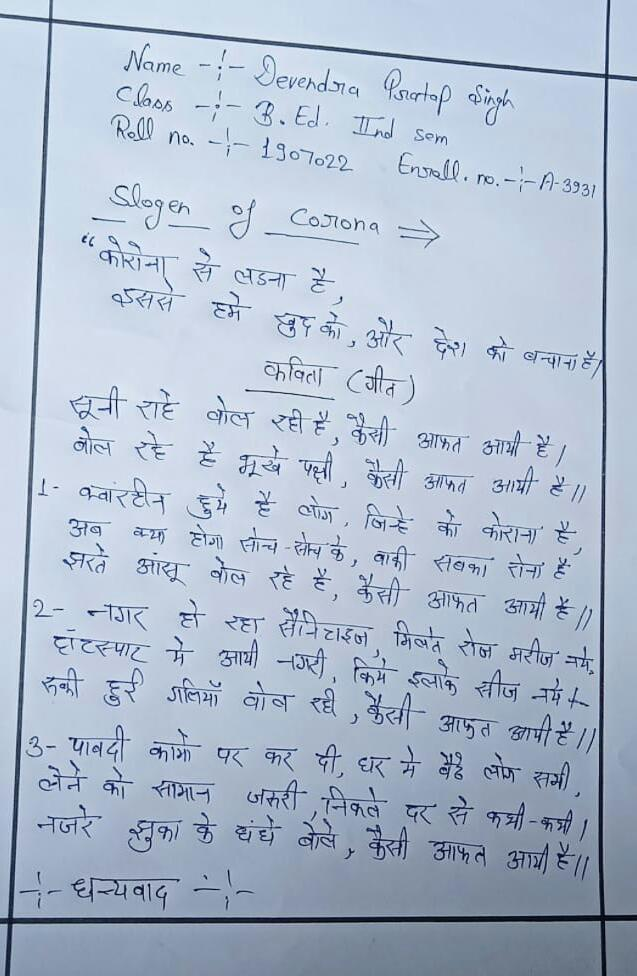 Name -:- Devendra Pratap Singh
Class -:- B. Ed. IInd sem
Roll no. -:- 1907022 Enroll. no. -:- A-3931
Slogen of Corona ⇒
“कोरोना से लडना है,
इससे हमे खुद को, और देश को बचाना है।
कविता (गीत)
सूनी राहे बोल रही है, कैसी आफत आयी है।
बोल रहे है भूखे पक्षी, कैसी आफत आयी है॥
1- क्वारंटीन हुये है लोग, जिन्हे को कोराना है,
अब क्या होगा सोच-सोच के, बाकी सबका रोना है
झरते आंसू बोल रहे है, कैसी आफत आयी है॥
2- नगर हो रहा सैनिटाइज, मिलते रोज मरीज नये,
हॉटस्पाट मे आयी नगरी, किये इलाके सीज नये।
रुकी हुई गलियाँ बोल रही, कैसी आफत आयी है॥
3- पाबदी कामो पर कर दी, घर मे बैठे लोग सभी,
लेने को सामान जरूरी, निकले दर से कभी-कभी।
नजरे झुका के धंधे बोले, कैसी आफत आयी है॥
-:- धन्यवाद -:-